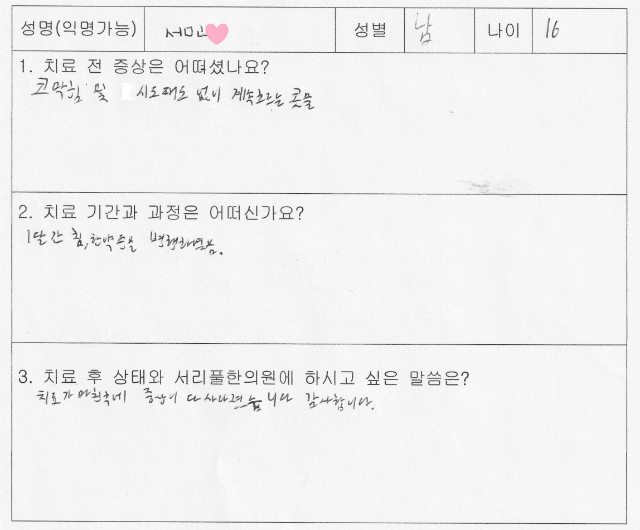 성명(익명가능) 서민 성별 남 나이 16
1. 치료 전 증상은 어떠셨나요?
코막힘 및 시도때도 없이 계속흐르는 콧물
2. 치료 기간과 과정은 어떠신가요?
1달간 침, 한약 등을 병행하였음.
3. 치료 후 상태와 서리풀한의원에 하시고 싶은 말씀은?
치료가 마친후에 증상이 다 사라졌습니다 감사합니다.